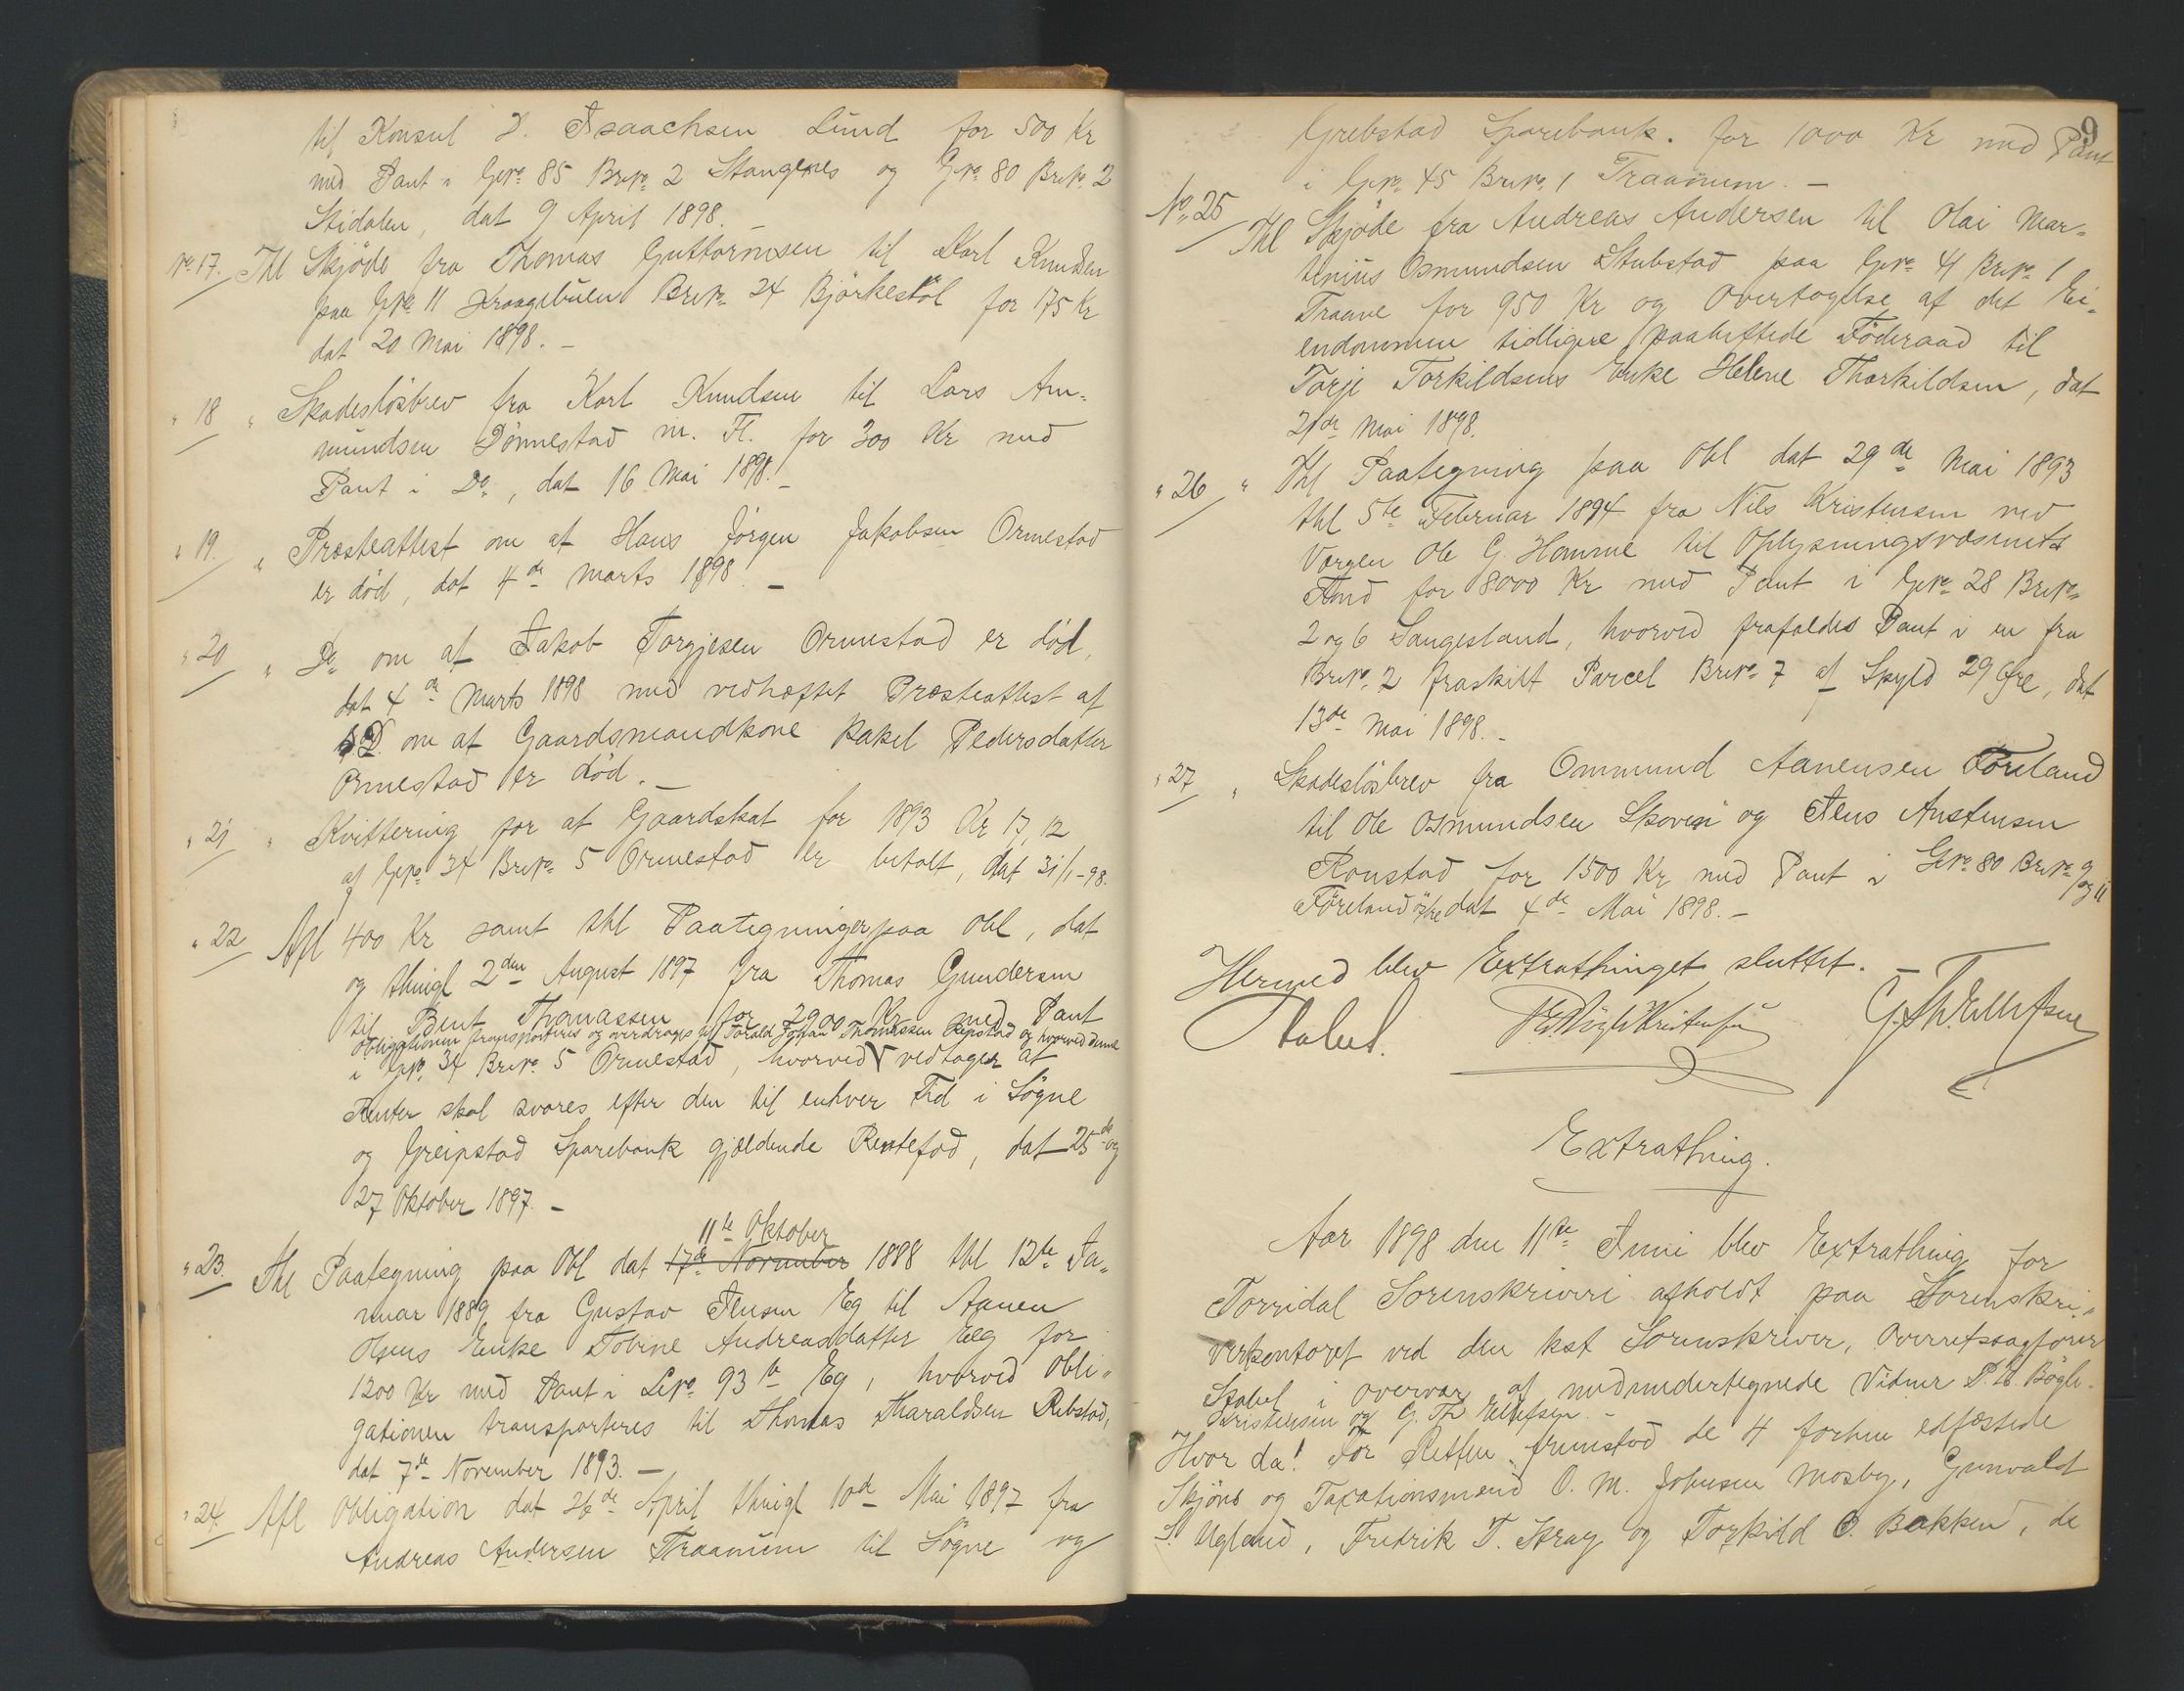 til Konsul D. Isaachsen Lund for 500 Kr
med Pant i Gno 85 Brno 2 Stangenes og Gno 80 Brno 2
Stidalen, dat 9 April 1898.
No 17. Thl Skjöde fra Thomas Guttormsen til Karl Knudsen
paa Gno 11 Kraagebuen Brno 24 Björkestöl for 175 Kr
dat 20 Mai 1898. –
" 18 " Skadeslösbrev fra Karl Knudsen til Lars Am-
mundsen Dönnestad m. Fl. for 300 Kr med
Pant i Do, dat 16 Mai 1898. –
" 19. " Præsteattest om at Hans Jörgen Jakobsen Ormestad
er död, dat 4de Marts 1898. –
" 20 " Do om at Jakob Torgjesen Ormestad er död,
dat 4de Marts 1898 med vedhæftet Præsteattest af
S.D. om at Gaardsmandkone Rakel Pedersdatter
Ormestad er död. –
" 21 " Kvittering for at Gaardskat for 1893 Kr 17,12
af Gno 34 Brno 5 Ormestad er betalt, dat 31/1-98.
" 22 Afl 400 Kr samt thl Paategninger paa Obl, dat
og thingl 2den August 1897 fra Thomas Gundersen
til Bent Thomassen for 2900 Kr med Pant
Obligationen transporteres og overdrages til Torald Johan Thomassen Repstad og hvorved denne
i Gno 34 Brno 5 Ormestad, hvorved V vedtager at
Renter skal svares efter den til enhver Tid i Sögne
og Greipstad Sparebank gjældende Rentefod, dat 25de og
27 Oktober 1897. –
11te Oktober
" 23. Thl Paategning paa Obl dat 17de November 1888 thl 12te Ja-
nuar 1889 fra Gustav Jensen Eg til Aanen
Olsens Enke Tobine Andreasdatter Eeg for
1200 Kr med Pant i Lno 93 b Eg, hvorved Obli-
gationen transporteres til Thomas Tharaldsen Rebstad,
dat 7de November 1893. –
" 24. Afl Obligation dat 26de April thingl 10de Mai 1897 fra
Andreas Andersen Traanum til Sögne og
9
Grebstad Sparebank. for 1000 Kr med Pant
i Gno 45 Brno 1 Traanum. –
No 25 Thl Skjöde fra Andreas Andersen til Olai Mar-
tinius Osmundsen Stubstad paa Gno 41 Brno 1
Traane for 950 Kr og Overtagelse af det Ei-
endommen tidligere paaheftede Föderaad til
Torje Torkildsens Enke Helene Thorkildsen, dat
21de Mai 1898.
" 26 " Thl Paategning paa Obl dat 29de Mai 1893
thl 5te Februar 1894 fra Nils Kristensen ved
Værgen Ole G. Homme til Oplysningsvæsenets
Fond for 8000 Kr med Pant i Gno 28 Brno
2 og 6 Langesland, hvorved frafaldes Pant i en fra
Brno 2 fraskilt Parcel Brno 7 af Skyld 29 Öre, dat
13de Mai 1898. –
" 27 " Skadeslösbrev fra Ommund Aanensen Föreland
til Ole Osmundsen Skoveri og Jens Austensen
Ronstad for 1500 Kr med Pant i Gno 80 Brno 9 og 11
Föreland östre dat 4de Mai 1898. –
Hermed blev Extrathinget sluttet. –
Stabel. G. Th. Ellefsen
Extrathing.
Aar 1898 den 11te Juni blev Extrathing for
Torridal Sorenskriveri afholdt paa Sorenskri-
verkontoret ved den kst Sorenskriver, Overretssagförer
Stabel i Overvær af medundertegnede Vidner P. W. Bögh-
Kristensen og G. Th Ellefsen –
Hvor da! For Retten fremstod de 4 forhen edfæstede
Skjöns og Taxationsmænd O. M. Johnsen Mosby, Gunvald
S. Ugland, Fredrik T. Stray og Torkild O. Bakken, de